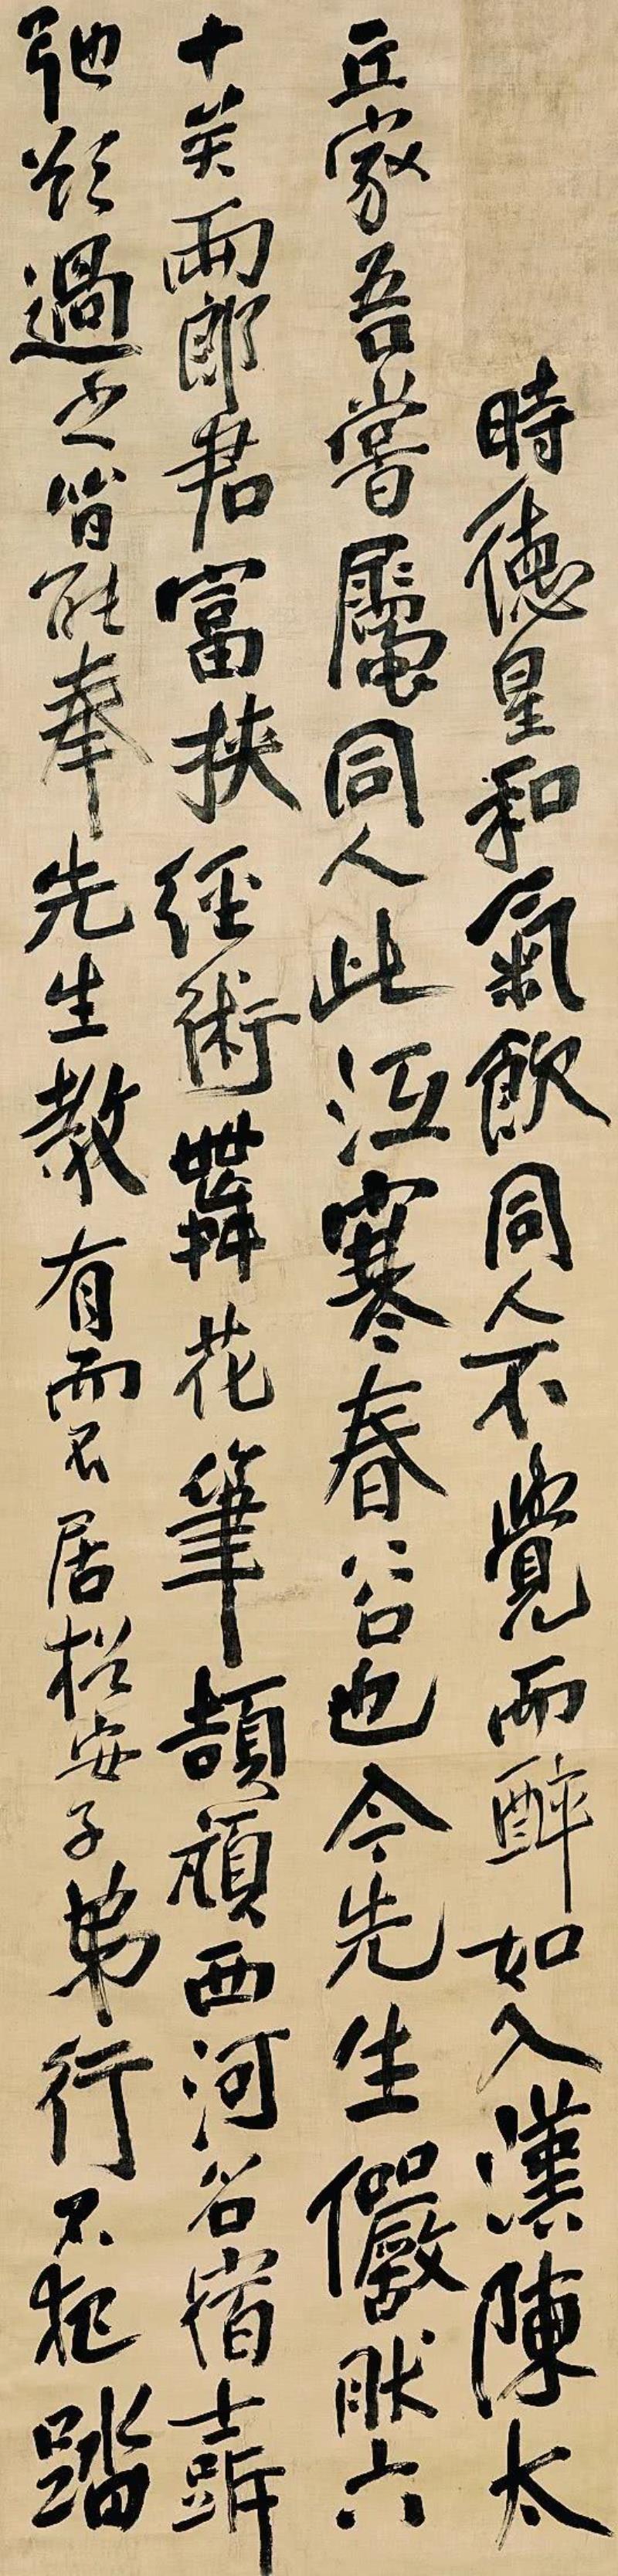 時德星和氣飲同人不覺而醉如入漢陳太
丘家吾嘗屬同人此冱寒春谷也今先生儼然六
十矣兩郎君富挾經術舞花筆頡頏西河名宿士跅
弛欲過之皆能奉先生教有而不居於安子弟行不犯踏